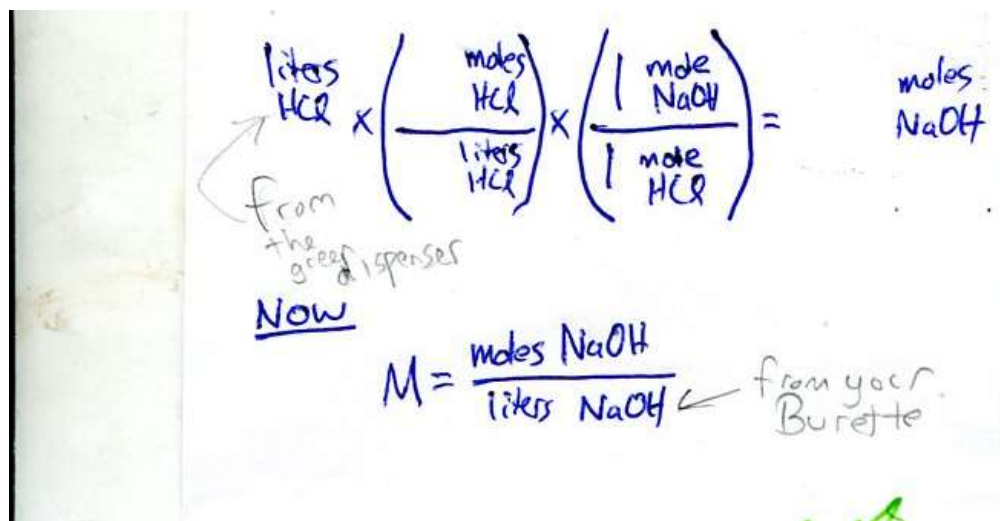 liters HCl × ( moles HCl / liters HCl ) × ( 1 mole NaOH / 1 mole HCl ) = moles NaOH
from
the
green dispenser
Now
M = moles NaOH / liters NaOH
from your
Burette